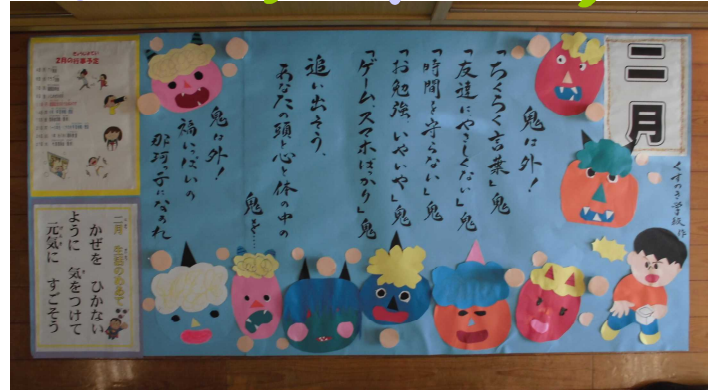 二月
くすのき学級 作
鬼は外!
「ちくちく言葉」鬼
「友達にやさしくない」鬼
「時間を守らない」鬼
「お勉強、いやいや」鬼
「ゲーム、スマホばっかり」鬼
追い出そう、
あなたの頭と心と体の中の
鬼を…
鬼は外!
福いっぱいの
那珂っ子になあれ
2月の行事予定
二月 生活のめあて
かぜを ひかない
ように 気をつけて
元気に すごそう